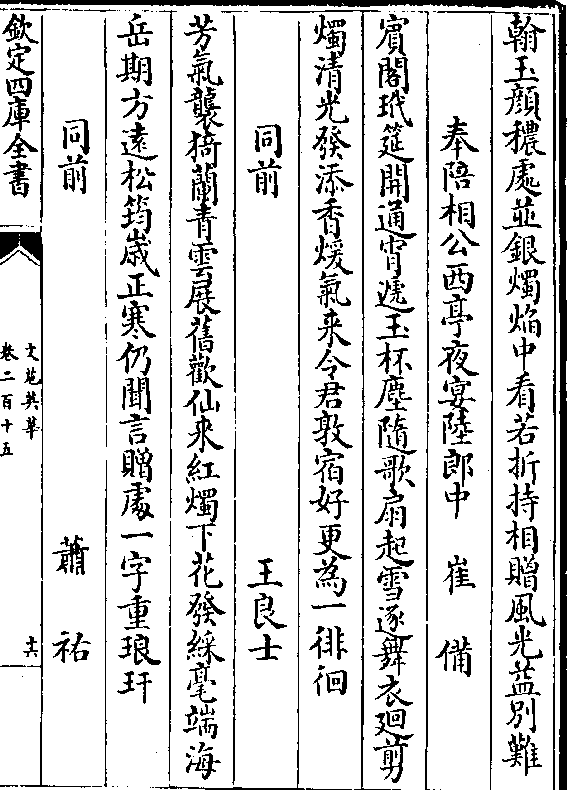 翰玉顔穠處並銀燭焰中看若折持相贈風光益别難
奉陪相公西亭夜宴陸郎中 崔備
賓閣玳筵開通宵遞玉杯塵隨歌扇起雪逐舞衣廻剪
燭清光發添香煖氣来令君敦宿好更為一徘徊
同前 王良士
芳氣襲猗蘭青雲展舊歡仙来紅燭下花發綵毫端海
岳期方遠松筠歳正寒仍聞言贈處一字重琅玕
同前 蕭祐
欽定四庫全書
文苑英華
卷二百十五
十六